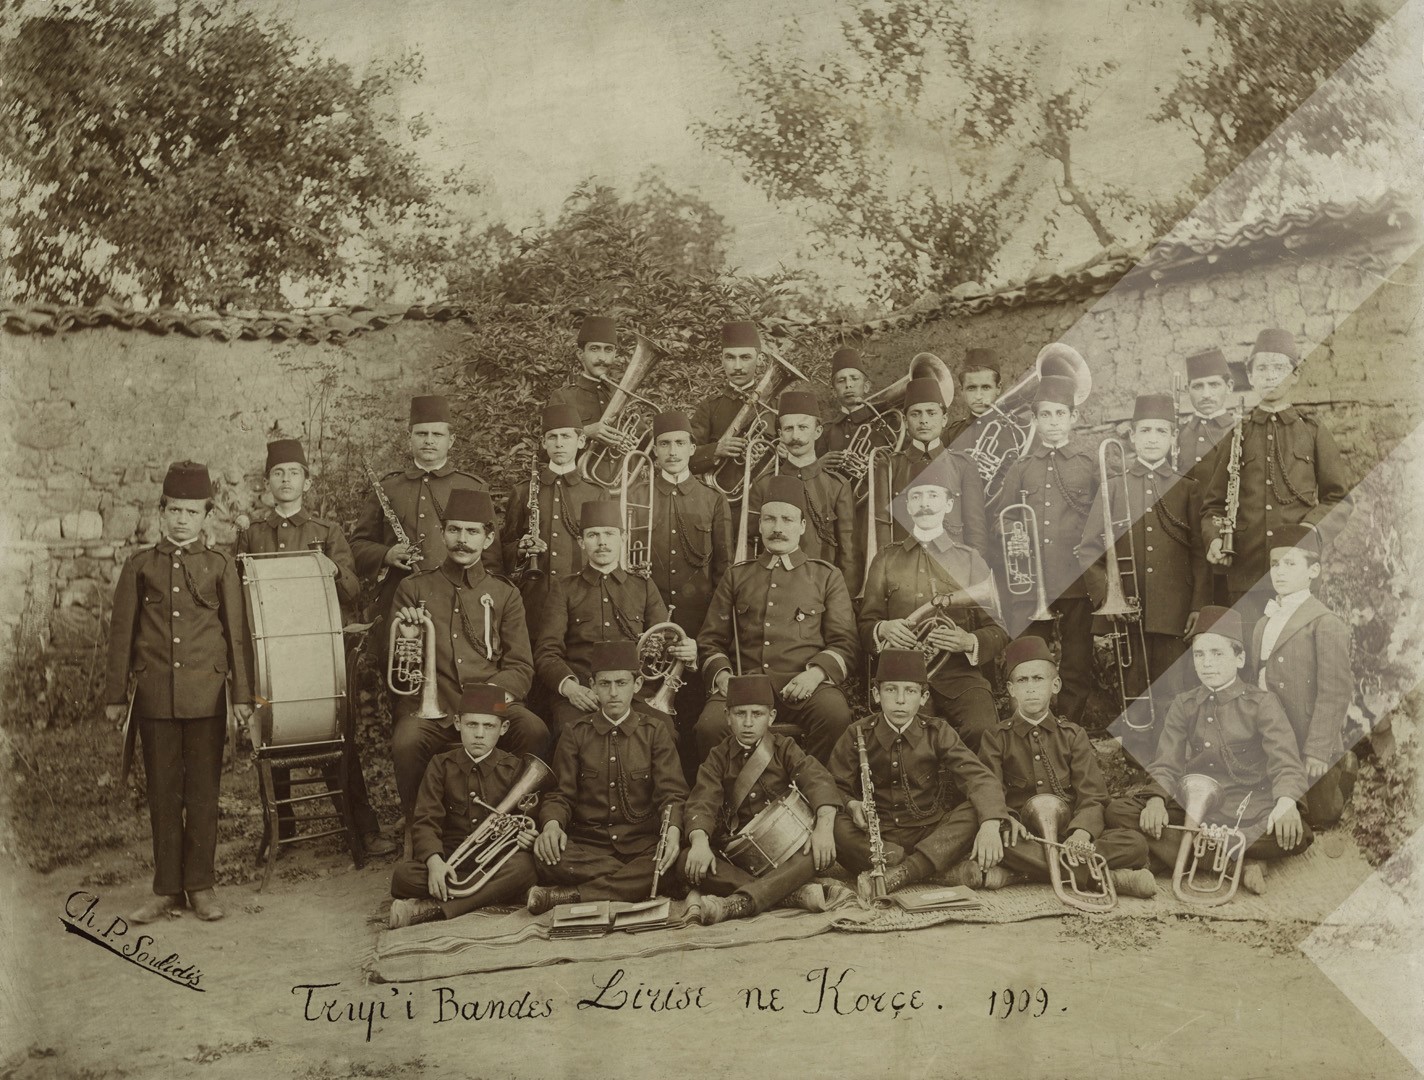 Ch. P. Soulidis
Trup'i Bandεs Lirisε nε Korçε. 1909.